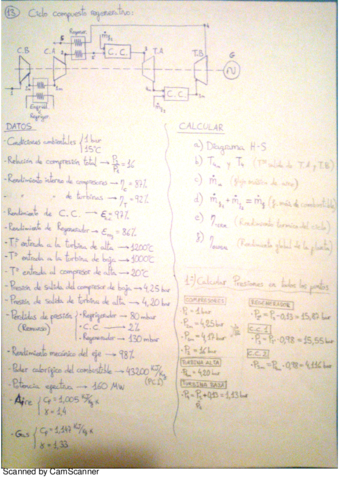 13) Ciclo compuesto regenerativo:
Regener.
C.B C.A C.C. T.A T.B G
C.C.
DATOS
- Condiciones ambientales { 1 bar
15°C
- Relación de compresión total → = 16
- Rendimiento interno de compresores → η = 87%
" " de turbinas → η = 92%
- Rendimiento de C.C. → = 97%
- Rendimiento de Regenerador → = 86%
- Tª entrada a la turbina de alta → 1200°C
- Tª entrada a la turbina de baja → 1000°C
- Tª entrada al compresor de alta → 20°C
- Presión de salida del compresor de baja → 4,25 bar
- Presión de salida de turbina de alta → 4,20 bar
- Pérdidas de presión → Refrigerador → 80 mbar
→ C.C. → 2%
→ Regenerador → 130 mbar
- Rendimiento mecánico del eje → 98%
- Poder calorífico del combustible → 43200 KJ/Kg
(PCI)
- Potencia efectiva → 160 MW
- Aire { Cp = 1,005 KJ/Kg K
γ = 1,4
- Gas { Cp = 1,147 KJ/Kg K
γ = 1,33
CALCULAR
a) Diagrama H-S
b) (Tª salida de T.A y T.B)
c) ṁa (flujo másico de aire)
d) (g. másico de combustible)
e) (Rendimiento térmico del ciclo)
f) (Rendimiento global de la planta)
1º) Calcular Presiones en todos los puntos
COMPRESORES
= 1 bar
= 4,25 bar
= 4,17 bar
= 16 bar
TURBINA ALTA
= 4,20 bar
TURBINA BAJA
+ 0,13 = 1,13 bar
REGENERADOR
- 0,13 = 15,87 bar
C.C. 1
· 0,98 = 15,55 bar
C.C. 2
· 0,98 = 4,116 bar
Scanned by CamScanner